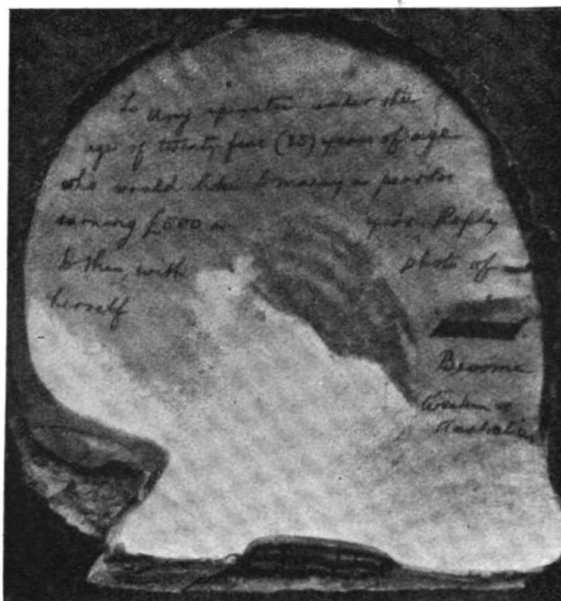 To any spinster under the
age of twenty five (25) years of age
who would like to marry a pearler
earning £500 a year. Reply
to this, with photo of
herself
Broome
Western
Australia